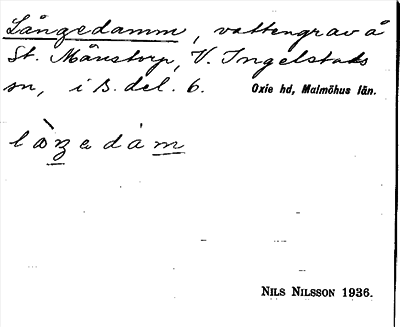 Långedamm, vattengrav å
St. Månstorp, V. Ingelstads
sn, i B. del. 6. Oxie hd, Malmöhus län.
NILS NILSSON 1936.